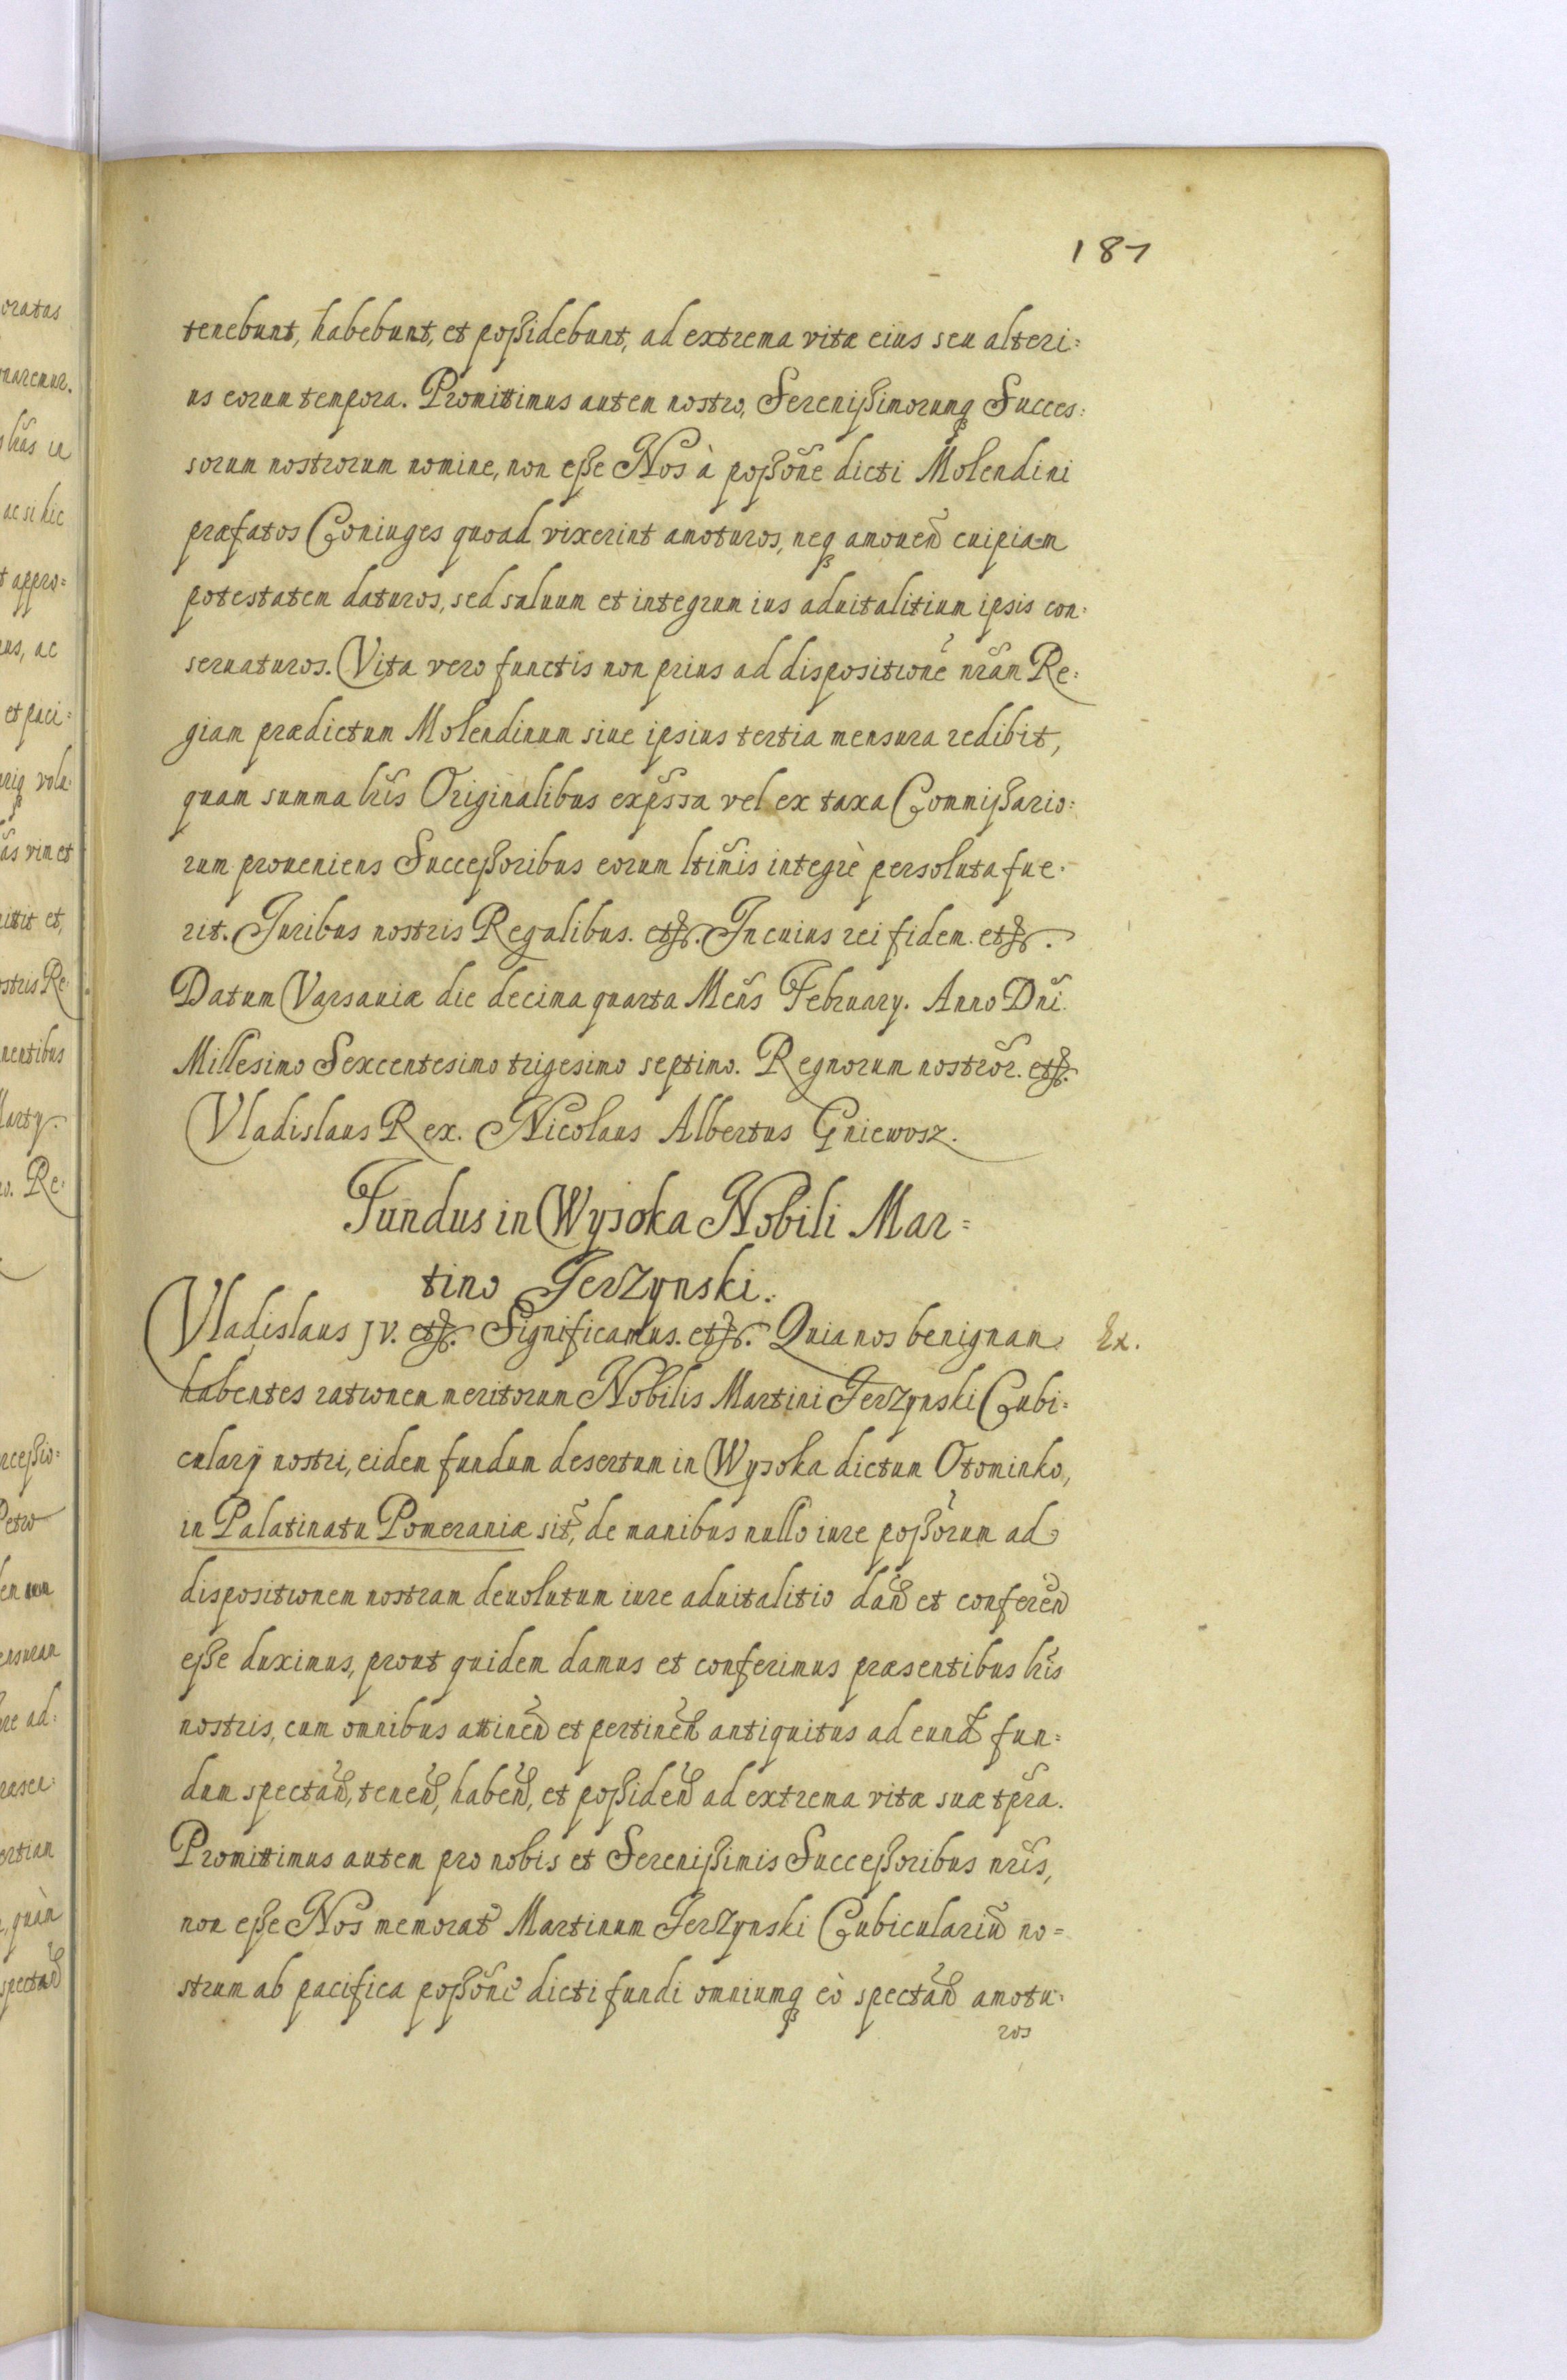 187
tenebunt, habebunt, et poßidebunt, ad extrema vitæ eius seu alteri=
us eorum tempora. Promittimus autem nostro, Serenißimorumq Succes=
sorum nostrorum nomine, non eße Nos à poßone dicti Molendini
præfatos Coniuges quoad vixerint amoturos, neq amouen cuipiam
potestatem daturos, sed saluum et integrum ius aduitalitium ipsis con=
seruaturos. Vita vero functis non prius ad dispositione nram Re=
giam prædictum Molendinum siue ipsius tertia mensura redibit,
quam summa lris Originalibus expssa vel ex taxa Commißario=
rum proueniens Succeßoribus eorum ltimis integrè persoluta fue=
rit. Juribus nostris Regalibus. etc. In cuius rei fidem. etc.
Datum Varsauiæ die decima quarta Mens February. Anno Dni
Millesimo Sexcentesimo trigesimo septimo. Regnorum nostror. etc.
Vladislaus Rex. Nicolaus Albertus Gniewosz.
Fundus in Wysoka Nobili Mar=
tino Jerzynski.
Vladislaus IV. etc. Significamus. etc. Quia nos benignam
Ex.
habentes rationem meritorum Nobilis Martini Jerzynski Cubi=
cularÿ nostri, eidem fundum desertum in Wysoka dictum Otominko,
in Palatinatu Pomeraniæ sit, de manibus nullo iure poßorum ad
dispositionem nostram deuolutum iure aduitalitio dan et conferen
eße duximus, prout quidem damus et conferimus præsentibus lris
nostris, cum omnibus attinen et pertinen antiquitus ad eund fun=
dum spectan, tenen, haben, et poßiden ad extrema vitæ suæ tpra.
Promittimus autem pro nobis et Serenißimis Succeßoribus nris,
non eße Nos memorat Martinum Jerzynski Cubiculariu no=
strum ab pacifica poßone dicti fundi omniumq eò spectan amotu=
ros